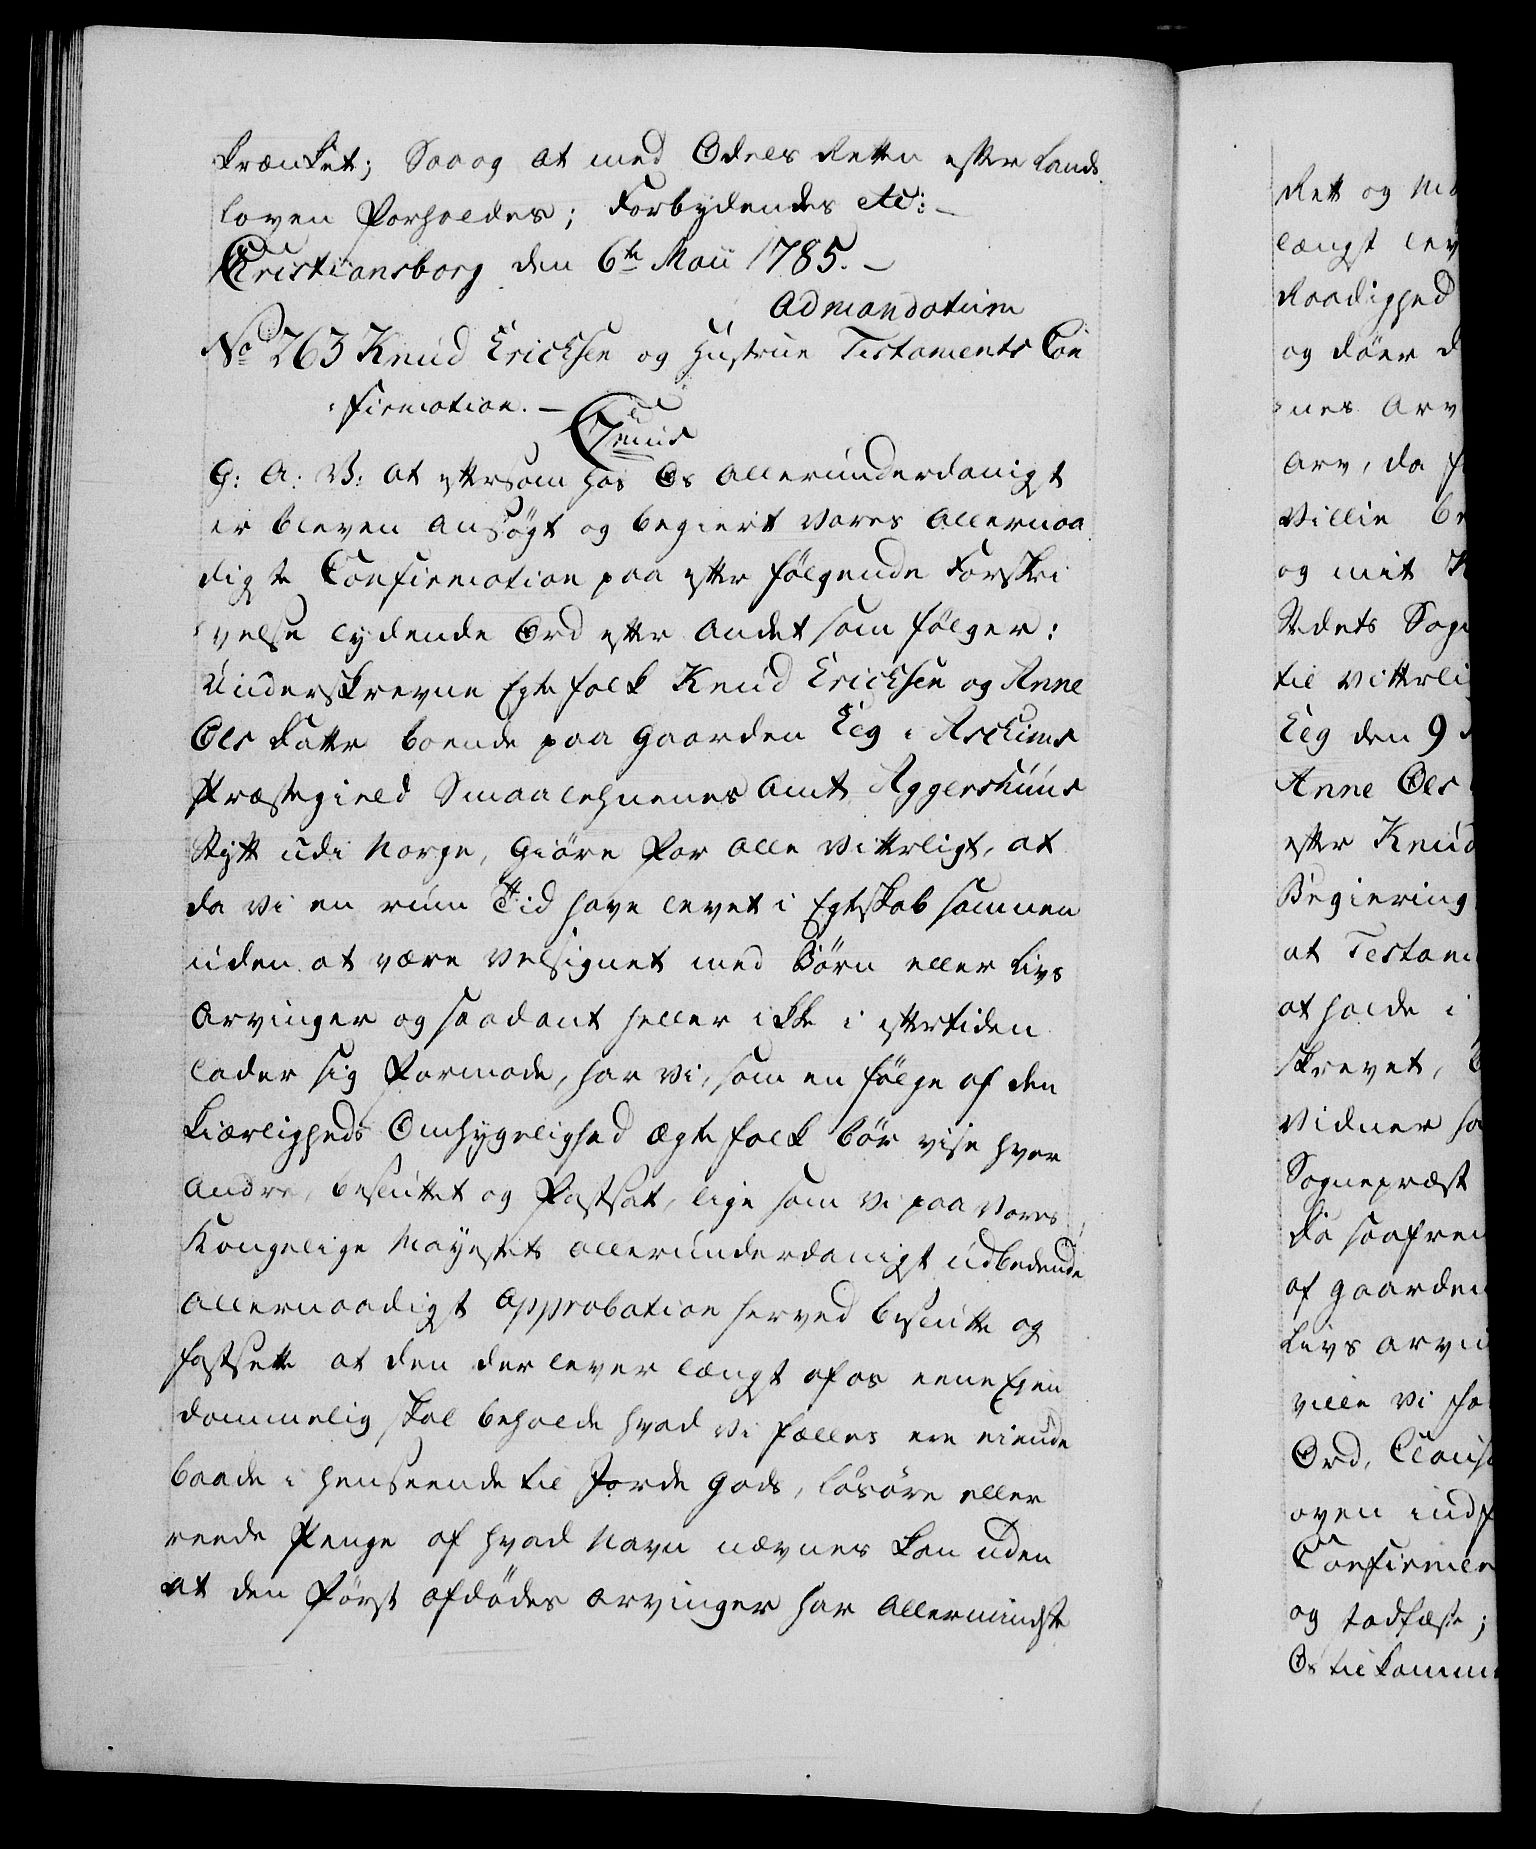 krænket; Saaog at med Odels Retten efter Lands
loven forholdes; Forbydendes etc: –
Christiansborg den 6te Maii 1785. –
Ad mandatum
No 263 Knud Ericksen og Hustrue Testaments Con
firmation. –
G: A: V: at eftersom hos Os allerunderdanigst
er bleven ansøgt og begiert Vores allernaa
digste Confirmation paa efterfølgende Forskri
velse lydende Ord efter andet som følger:
Underskrevne Egtefolk Knud Ericksen og Anne
Olsdatter boende paa Gaarden Eeg i Aschims
Præstegield Smaalehnenes Amt Aggershuus
Stift udi Norge, Giøre for alle vitterligt, at
da vi en rum Tid have levet i Egteskab sammen
uden at være velsignet med Børn eller Livs
Arvinger og saadant heller ikke i eftertiden
lader sig formode, har vi, som en følge af den
Kierligheds Omhygelighed Ægtefolk bør vise hver
andre, besluttet og fastsat, lige som vi paa Vores
Kongelige Mayestets allerunderdanigst udbedende
allernaadigst Approbation herved beslutte og
fastsette at den der lever længst af os eene Ejen
dommelig skal beholde hvad vi fælles ere eiende
baade i henseende til Jorde Gods, Løsøre eller
reede Penge af hvad Navn nævnes kan uden
at den først afdødes Arvinger har allermindste
Ret og
længst lev
Raadighed
og døer d
nes Arv
Arv, da
Villie
og mit
Stedets Sogn
til vitterli
Eeg den 9
Anne Ols
efter Knud
Begiering
at Testam
at holde i
skrevet,
Vidner ha
Sognepræst
Da saafrem
af Gaarden
Livs Arvin
ville vi ha
Ord, Claus
oven indf
Confirmer
og stadfæste;
Os tilkomme